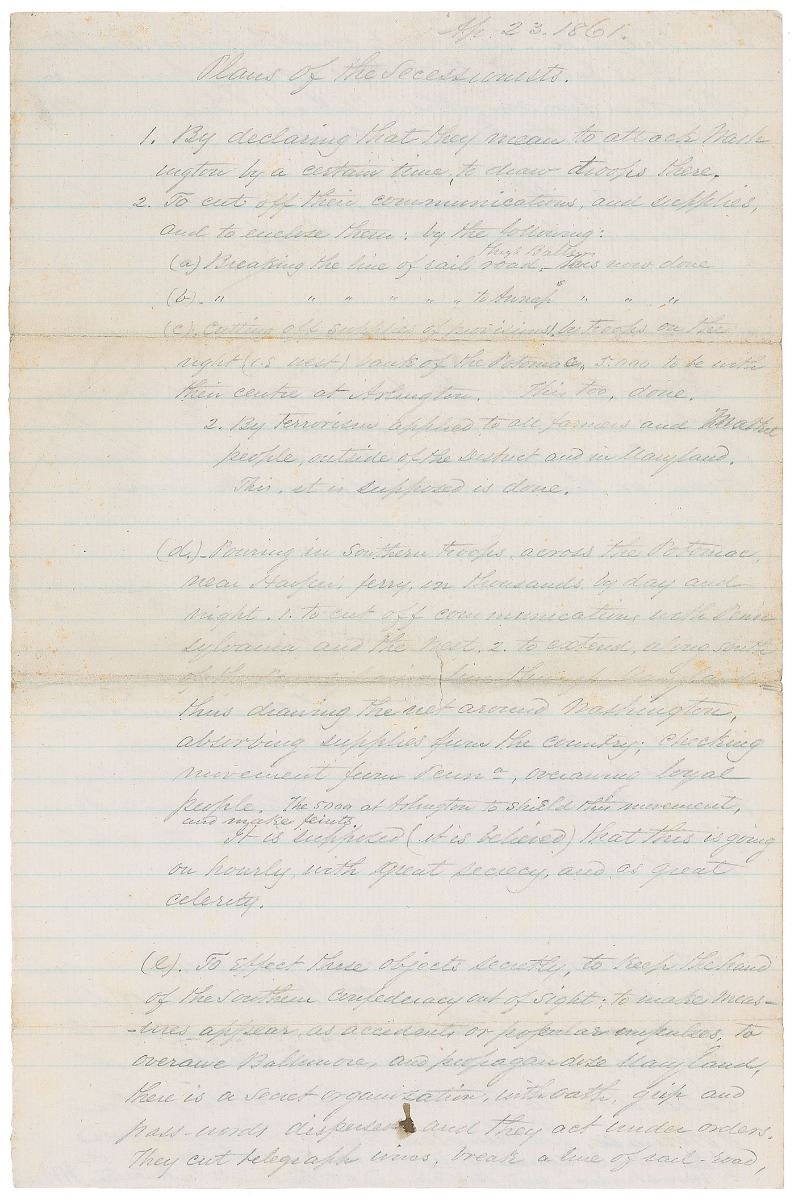 Ap. 23. 1861.
Plans of the Secessionists.
1. By declaring that they mean to attack Wash
ington by a certain time, to draw troops there.
2. To cut off their communications, and supplies,
and to enclose them: by the following:
thro' Balto
(a) Breaking the line of rail road. This now done
(b). " " " " " " to Annaps " " "
(c). cutting off supplies of provisions 1. by troops on the
right (i.e west) bank of the Potomac, 5.000 to be with
their centre at Arlington. This too, done.
2. By terrorism applied to all farmers and market
people, outside of the District and in Maryland.
This, it is supposed is done.
(d.) Pouring in Southern troops, across the Potomac,
near Harper's ferry, in thousands, by day and
night. 1. to cut off communication, with Penn
sylvania and the West. 2. to extend, along south
of the line through Maryland
thus drawing the net around Washington,
absorbing supplies from the country; checking
movement from Penna, overawing loyal
people. The 5000 at Arlington to shield this movement,
and make feints.
It is supposed (it is believed) that this is going
on hourly, with great secrecy, and as great
celerity.
(e). To effect these objects secretly, to keep the hand
of the Southern Confederacy out of sight; to make meas-
-ures appear, as accidents or popular impulses, to
overawe Baltimore, and propagandize Maryland,
there is a secret organization, with oath, grip and
pass-words dispersed and they act under orders.
They cut telegraph wires, break a line of rail-road,